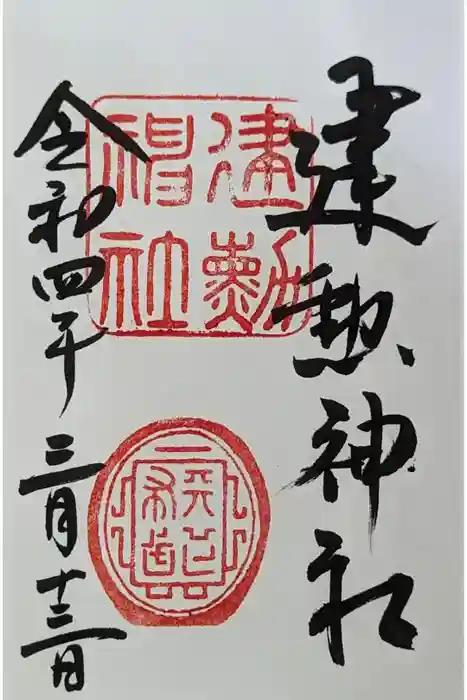 建勲神社
建勲
神社
天下布武
令和四年
三月十三日